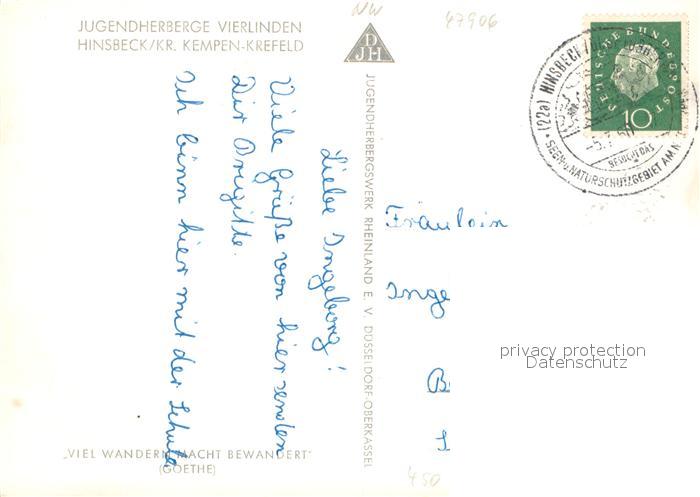 JUGENDHERBERGE VIERLINDEN
HINSBECK/KR. KEMPEN-KREFELD
NW
47906
DJH
JUGENDHERBERGSWERK RHEINLAND E. V. DÜSSELDORF-OBERKASSEL
DEUTSCHE BUNDESPOST
10
(22a) HINSBECK
BESUCHT DAS
SEGN- u. NATURSCHUTZGEBIET AM N
Liebe Ingeborg!
Viele Grüße von hier senden
Dir Brigitte.
Ich binn hier mit der Schule
Fräulein
Inge
B
privacy protection
Datenschutz
„VIEL WANDERN MACHT BEWANDERT"
(GOETHE)
450